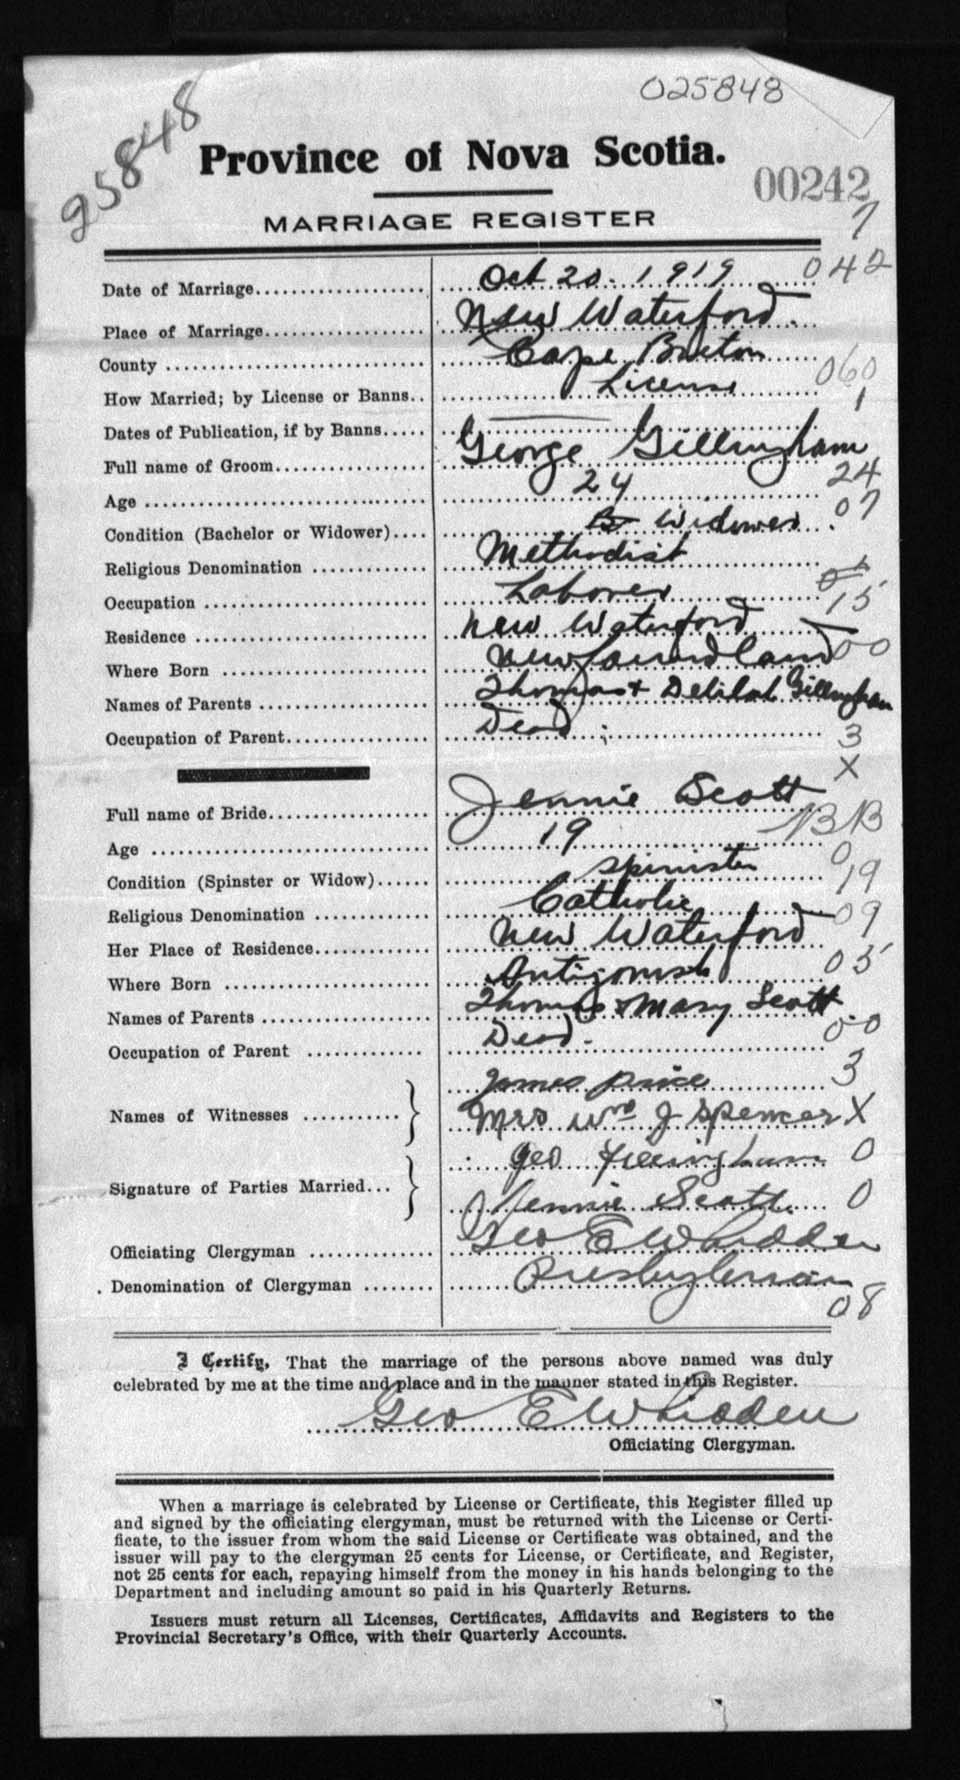 025848
25848
Province of Nova Scotia.
00242
MARRIAGE REGISTER
7
Date of Marriage Oct 20. 1919 042
Place of Marriage New Waterford.
County Cape Breton
How Married; by License or Banns.. License 060
1
Dates of Publication, if by Banns
Full name of Groom George Gillingham
Age 24 24
Condition (Bachelor or Widower) B Widower 07
Religious Denomination Methodist
Occupation Laborer 15
Residence New Waterford
Where Born Newfoundland 00
Names of Parents Thomas + Delilah Gillingham
Occupation of Parent Dead 3
X
Full name of Bride Jennie Scott
Age 19 BB
0
Condition (Spinster or Widow) Spinister 19
Religious Denomination Catholic 09
Her Place of Residence New Waterford
Where Born Antigonish 05
Names of Parents Thomas & Mary Scott
Occupation of Parent Dead. 00
Names of Witnesses James Price 3
Mrs Wm J Spencer X
Signature of Parties Married... Geo Gillingham 0
Jennie Scott 0
Officiating Clergyman Geo E Whidden
. Denomination of Clergyman Presbyterian
08
I Certify, That the marriage of the persons above named was duly
celebrated by me at the time and place and in the manner stated in this Register.
Geo E Whidden
Officiating Clergyman.
When a marriage is celebrated by License or Certificate, this Register filled up
and signed by the officiating clergyman, must be returned with the License or Certi-
ficate, to the issuer from whom the said License or Certificate was obtained, and the
issuer will pay to the clergyman 25 cents for License, or Certificate, and Register,
not 25 cents for each, repaying himself from the money in his hands belonging to the
Department and including amount so paid in his Quarterly Returns.
Issuers must return all Licenses, Certificates, Affidavits and Registers to the
Provincial Secretary's Office, with their Quarterly Accounts.